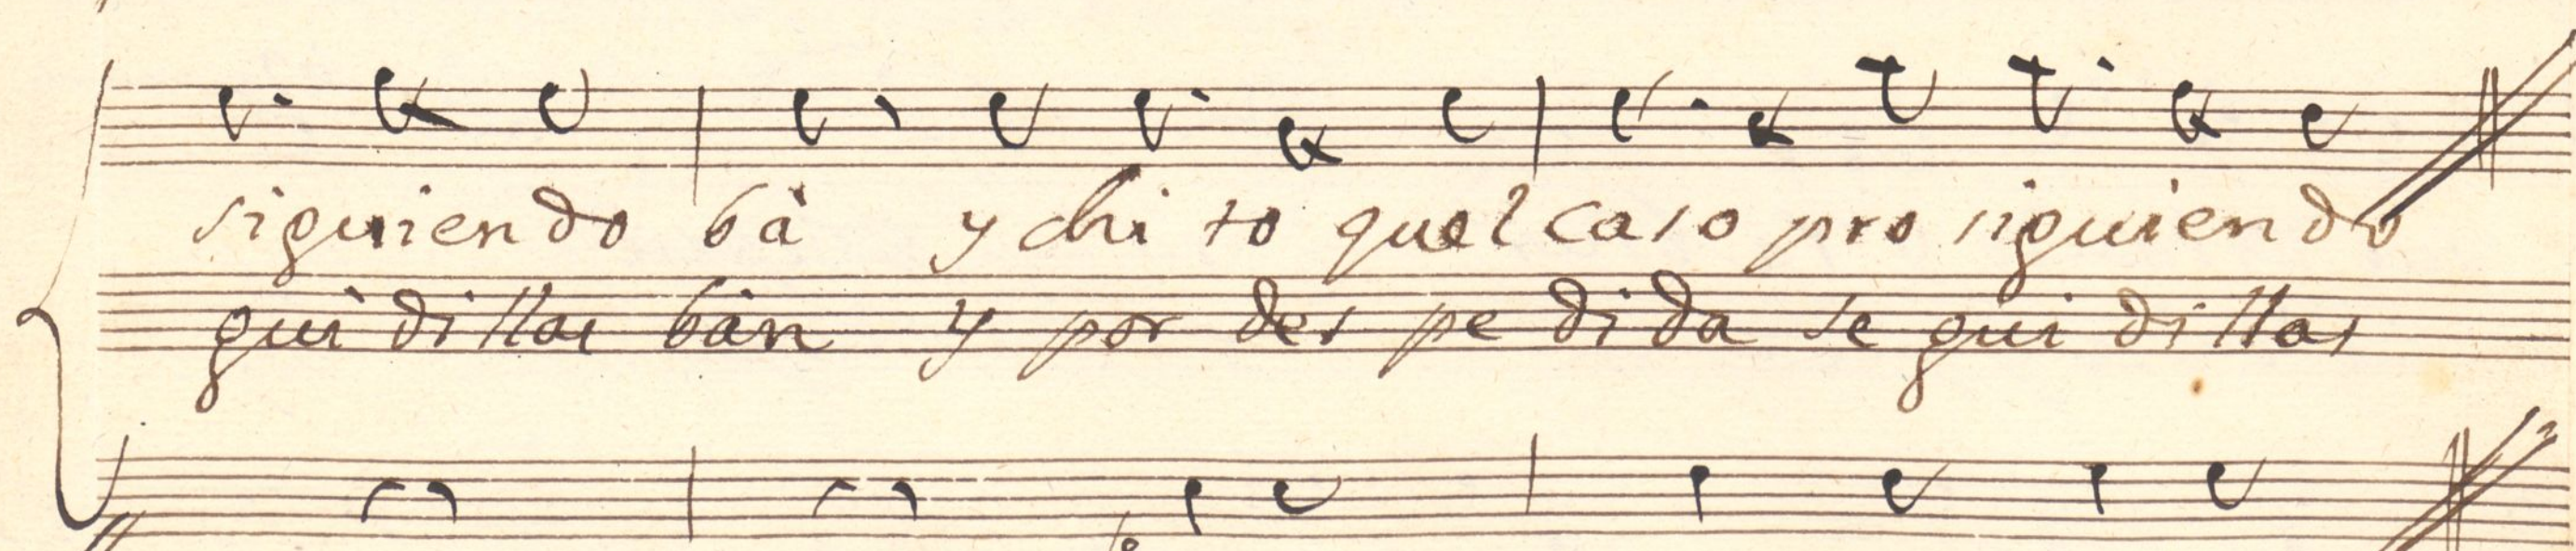 siguiendo bà y chi to quel caso pro siguiendo
gui di llas bàn y por des pe di da se gui di llas